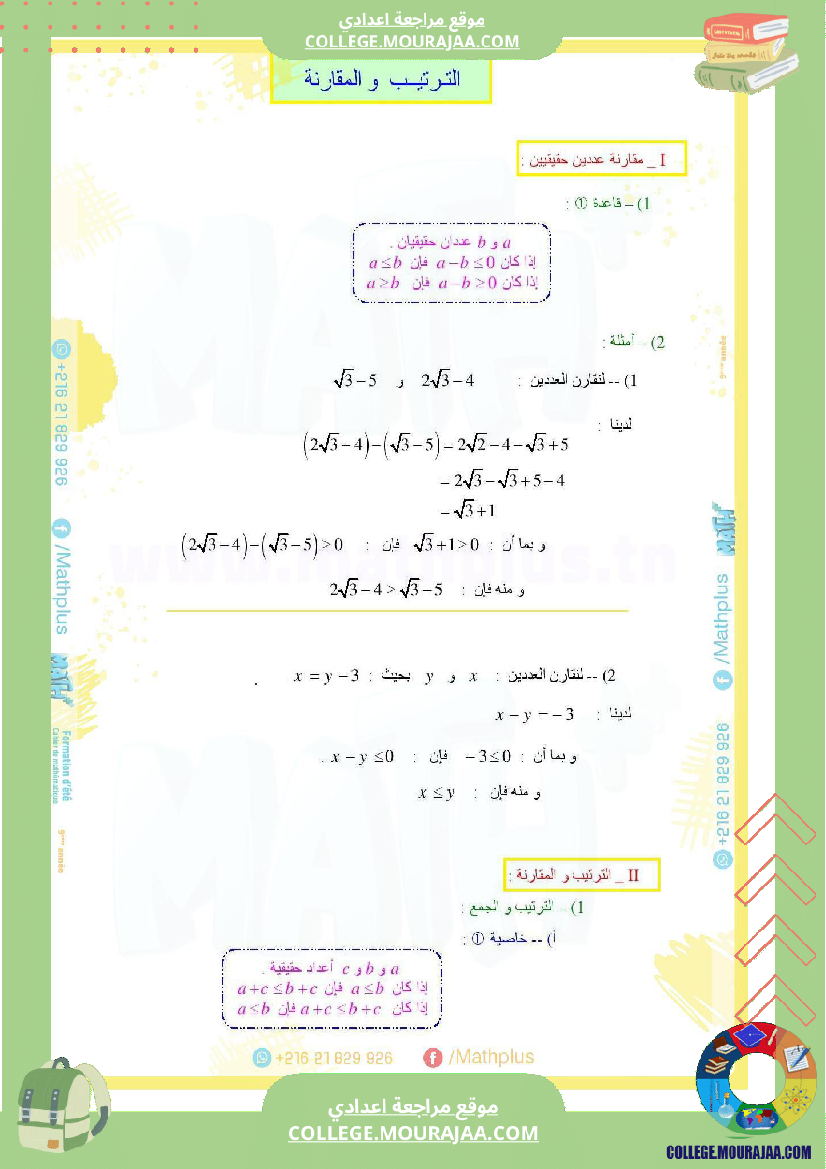 موقع مراجعة اعدادي
COLLEGE.MOURAJAA.COM
الترتيب و المقارنة
I _ مقارنة عددين حقيقيين :
1) – قاعدة ① :
a و b عددان حقيقيان .
إذا كان a – b ≤ 0 فإن a ≤ b
إذا كان a – b ≥ 0 فإن a ≥ b
2) – أمثلة :
1) -- لنقارن العددين : 2√3 – 4 و √3 – 5
لدينا :
(2√3 – 4) – (√3 – 5) = 2√2 – 4 – √3 + 5
= 2√3 – √3 + 5 – 4
= √3 + 1
و بما أن : √3 + 1 > 0 فإن : (2√3 – 4) – (√3 – 5) > 0
و منه فإن : 2√3 – 4 > √3 – 5
2) -- لنقارن العددين : x و y بحيث : x = y – 3 .
لدينا : x – y = – 3
و بما أن : – 3 ≤ 0 فإن : x – y ≤ 0 .
و منه فإن : x ≤ y
II _ الترتيب و المقارنة :
1) – الترتيب و الجمع :
أ) -- خاصية ① :
a و b و c أعداد حقيقية .
إذا كان a ≤ b فإن a + c ≤ b + c
إذا كان a + c ≤ b + c فإن a ≤ b
+216 21 829 926
/Mathplus
MATH+
Formation d'été
Cahier de mathématique
9ème année
9ème année
MATH+
/Mathplus
+216 21 829 926
www.mathplus.tn
MATH+
MATH+
+216 21 829 926 /Mathplus
موقع مراجعة اعدادي
COLLEGE.MOURAJAA.COM
COLLEGE.MOURAJAA.COM